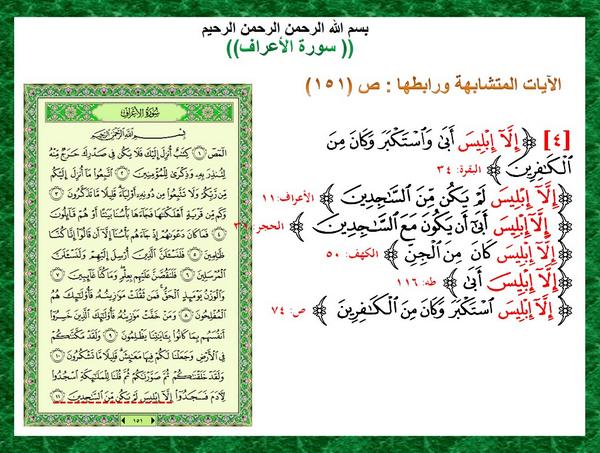 بسم الله الرحمن الرحمن الرحيم
(( سورة الأعراف ))
الآيات المتشابهة ورابطها : ص (١٥١)
[٤] ﴿ إِلَّآ إِبْلِيسَ أَبَىٰ وَٱسْتَكْبَرَ وَكَانَ مِنَ
ٱلْكَـٰفِرِينَ ﴾ البقرة: ٣٤
﴿ إِلَّآ إِبْلِيسَ لَمْ يَكُن مِّنَ ٱلسَّـٰجِدِينَ ﴾ الأعراف: ١١
﴿ إِلَّآ إِبْلِيسَ أَبَىٰٓ أَن يَكُونَ مَعَ ٱلسَّـٰجِدِينَ ﴾ الحجر:
﴿ إِلَّآ إِبْلِيسَ كَانَ مِنَ ٱلْجِنِّ ﴾ الكهف: ٥٠
﴿ إِلَّآ إِبْلِيسَ أَبَىٰ ﴾ طه: ١١٦
﴿ إِلَّآ إِبْلِيسَ ٱسْتَكْبَرَ وَكَانَ مِنَ ٱلْكَـٰفِرِينَ ﴾ ص: ٧٤
سُورَةُ الأَعْرَافِ
بِسْمِ ٱللَّهِ ٱلرَّحْمَـٰنِ ٱلرَّحِيمِ
الٓمٓصٓ ١ كِتَـٰبٌ أُنزِلَ إِلَيْكَ فَلَا يَكُن فِى صَدْرِكَ حَرَجٌ مِّنْهُ
لِتُنذِرَ بِهِۦ وَذِكْرَىٰ لِلْمُؤْمِنِينَ ٢ ٱتَّبِعُوا۟ مَآ أُنزِلَ إِلَيْكُم
مِّن رَّبِّكُمْ وَلَا تَتَّبِعُوا۟ مِن دُونِهِۦٓ أَوْلِيَآءَ قَلِيلًا مَّا تَذَكَّرُونَ ٣
وَكَم مِّن قَرْيَةٍ أَهْلَكْنَـٰهَا فَجَآءَهَا بَأْسُنَا بَيَـٰتًا أَوْ هُمْ قَآئِلُونَ
٤ فَمَا كَانَ دَعْوَىٰهُمْ إِذْ جَآءَهُم بَأْسُنَآ إِلَّآ أَن قَالُوٓا۟ إِنَّا كُنَّا
ظَـٰلِمِينَ ٥ فَلَنَسْـَٔلَنَّ ٱلَّذِينَ أُرْسِلَ إِلَيْهِمْ وَلَنَسْـَٔلَنَّ
ٱلْمُرْسَلِينَ ٦ فَلَنَقُصَّنَّ عَلَيْهِم بِعِلْمٍ وَمَا كُنَّا غَآئِبِينَ ٧
وَٱلْوَزْنُ يَوْمَئِذٍ ٱلْحَقُّ فَمَن ثَقُلَتْ مَوَٰزِينُهُۥ فَأُو۟لَـٰٓئِكَ هُمُ
ٱلْمُفْلِحُونَ ٨ وَمَنْ خَفَّتْ مَوَٰزِينُهُۥ فَأُو۟لَـٰٓئِكَ ٱلَّذِينَ خَسِرُوٓا۟
أَنفُسَهُم بِمَا كَانُوا۟ بِـَٔايَـٰتِنَا يَظْلِمُونَ ٩ وَلَقَدْ مَكَّنَّـٰكُمْ
فِى ٱلْأَرْضِ وَجَعَلْنَا لَكُمْ فِيهَا مَعَـٰيِشَ قَلِيلًا مَّا تَشْكُرُونَ ١٠
وَلَقَدْ خَلَقْنَـٰكُمْ ثُمَّ صَوَّرْنَـٰكُمْ ثُمَّ قُلْنَا لِلْمَلَـٰٓئِكَةِ ٱسْجُدُوا۟
لِـَٔادَمَ فَسَجَدُوٓا۟ إِلَّآ إِبْلِيسَ لَمْ يَكُن مِّنَ ٱلسَّـٰجِدِينَ ١١
١٥١